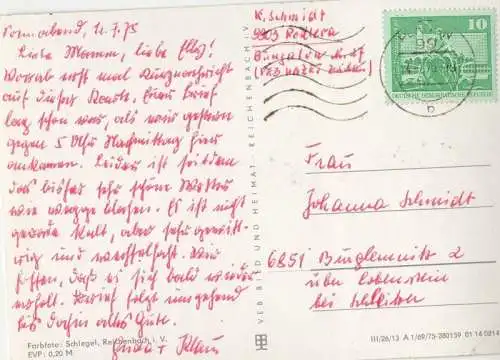 Sonnabend, 12.7.75
Liebe Mamm, liebe Elly!
Vorab erst mal
auf dieser Karte. Euer Brief
lag schon vor, als wir gestern
gegen 5 Uhr Nachmittag hier
ankamen. Leider ist seitdem
das bisher sehr schöne Wetter
wie weggeblasen. Es ist nicht
gerade kalt, aber sehr gewitt-
rig und wechselhaft. Wir
hoffen, daß es sich bald wieder
erholt. Brief folgt umgehend
bis dahin alles Gute.
+ Klaus
Farbfoto: Schlegel, Reichenbach i. V.
EVP: 0,20 M
VEB BILD UND HEIMAT · REICHENBACH i. V.
K. Schmidt
Bungalow Nr.
10
DEUTSCHE DEMOKRATISCHE REPUBLIK
Frau
Johanna Schmidt
6851 Burglemnitz 2
über Lobenstein
bei Schleiz
III/26/13 A 1/69/75-380159 01 14 0214